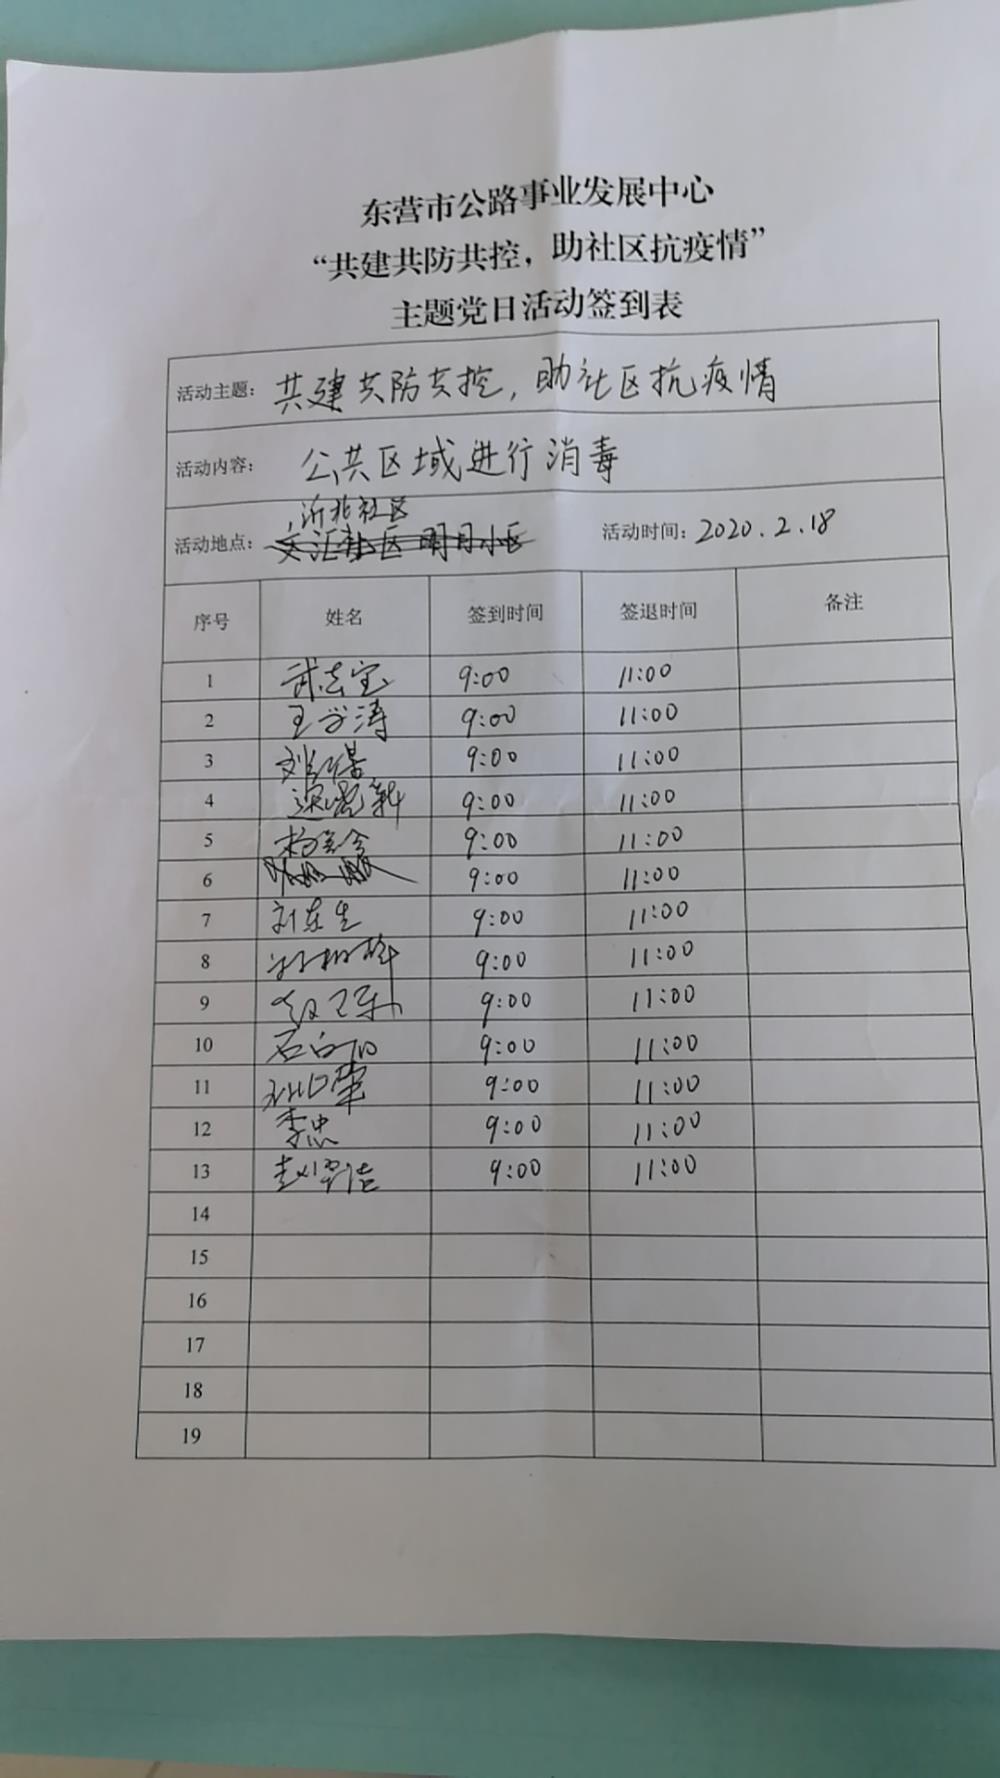 东营市公路事业发展中心
“共建共防共控，助社区抗疫情”
主题党日活动签到表
活动主题: 共建共防共控，助社区抗疫情
活动内容: 公共区域进行消毒
沂北社区
活动地点: 文汇社区明月小区 活动时间: 2020.2.18
序号 姓名 签到时间 签退时间 备注
1 武志宝 9:00 11:00
2 王学涛 9:00 11:00
3 9:00 11:00
4 9:00 11:00
5 9:00 11:00
6 9:00 11:00
7 刘东生 9:00 11:00
8 9:00 11:00
9 赵卫东 9:00 11:00
10 9:00 11:00
11 9:00 11:00
12 李忠 9:00 11:00
13 9:00 11:00
14
15
16
17
18
19